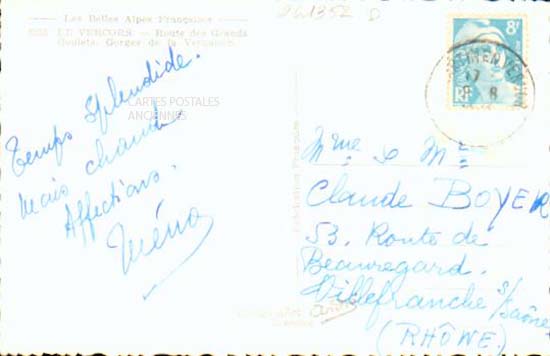 Les Belles Alpes Françaises
LE VERCORS - Route des Grands
Goulets. Gorges de la Vernaison
261352 D
8F
RF
17
8
CARTES POSTALES
ANCIENNES
Temps splendide.
Mais chaud
Affections.
Mme & Mr
Claude BOYER
53. Route de
Beauregard.
Villefranche s/Saône
(RHÔNE)